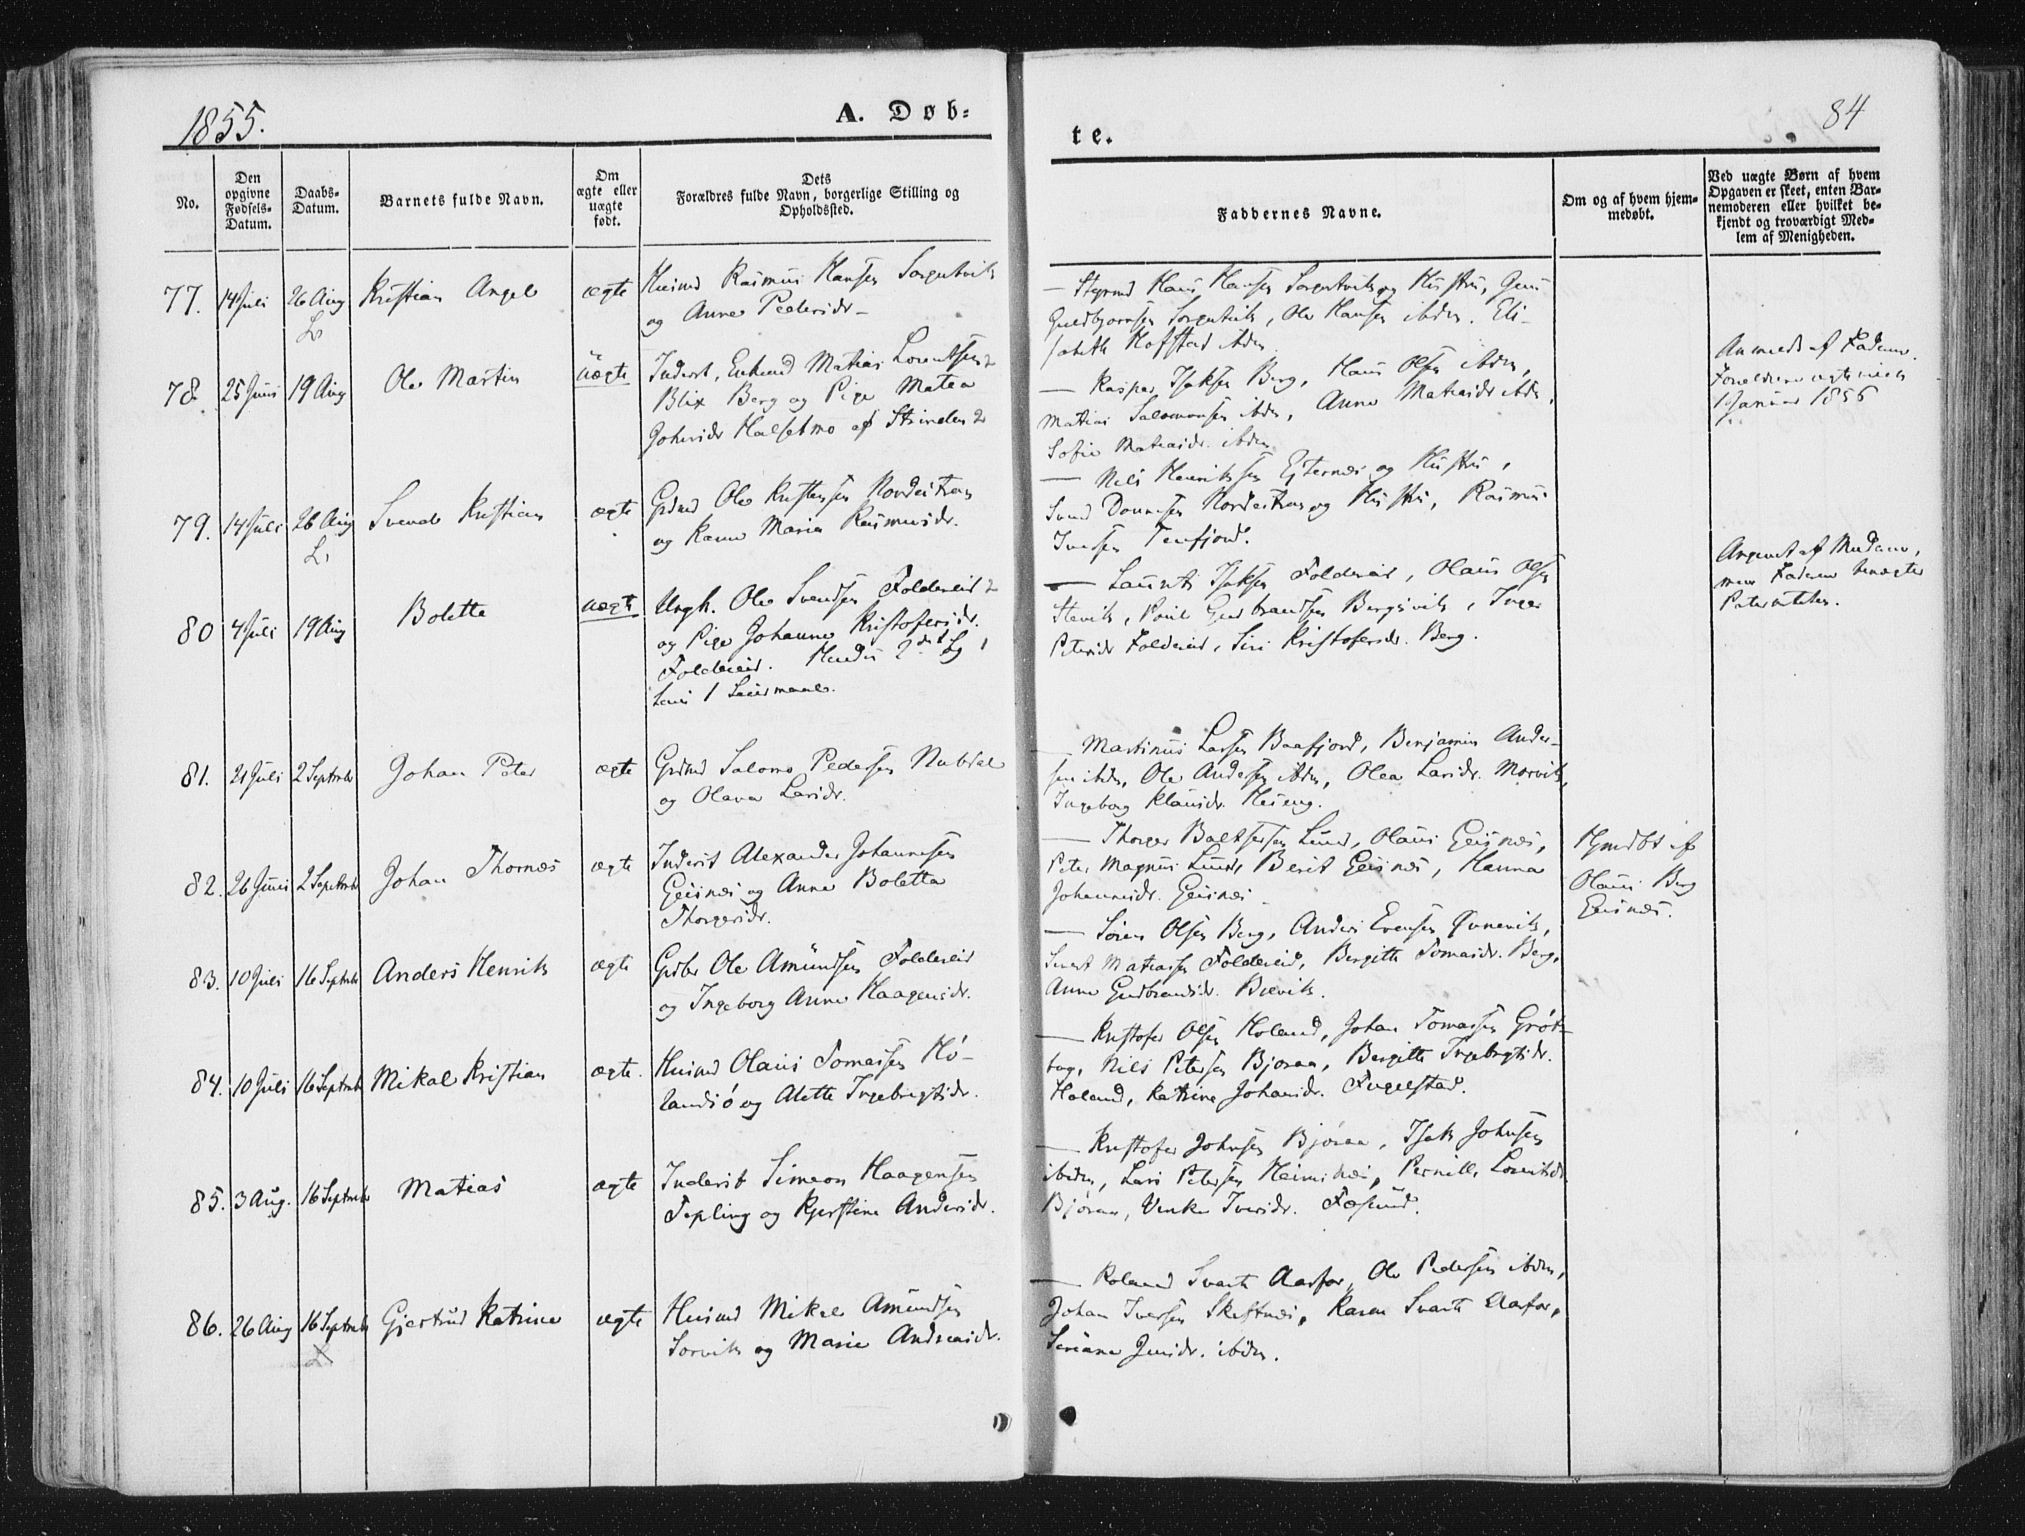 1855.
A. Døb=
te.
84
No.
Den opgivne Fødsels-Datum.
Daabs-Datum.
Barnets fulde Navn.
Om ægte eller uægte født.
Dets Forældres fulde Navn, borgerlige Stilling og Opholdssted.
Faddernes Navne.
Om og af hvem hjem-medøbt.
Ved uægte Børn af hvem Opgaven er skeet, enten Bar-nemoderen eller hvilket be-kjendt og troværdigt Med-lem af Menigheden.
77. 14 Juli 26 Aug Kristian Angel ægte
Husmd Rasmus Hansen
og Anne Pedersdr
Hans Hansen og Hustru,
Ole Hansen ibdm. Eli-
sabeth Hofstad ibdm
78. 25 Juni 19 Aug Ole Martin uægte
Inderst, Enkemd Matias Lorentsen
Blix Berg og Pige Matea
Johnsdr Halsetmo af Strinden
Kasper Isaksen Berg, Hans Olsen ibdm,
Matias Salomonsen ibdm, Anne Matiasdr ibdm,
Sofie Matiasdr. ibdm
Anmeldt af Faderen.
Forældrene
1 Januar 1856
79. 14 Juli 26 Aug Svend Kristian ægte
Grdmd Ole Kristensen
og Karen Maria Rasmusdr.
Nils Henriksen og Hustru,
Svend og Hustru, Rasmus
Iversen Terfjord.
80 4 Juli 19 Aug Bolette uægte
Ungk. Ole Svendsen Foldereid
og Pige Johanne Kristofersdr.
Foldereid. 2det Lg
1 Leiermaal.
Laurits Isaksen Foldereid, Olaus Olsen
Gudbrandsen Bergsvik, Inger
Petersdr Foldereid, Siri Kristofersdr. Berg.
Angivet af Moderen,
men Faderen benægter
Paterniteten.
81. 21 Juli 2 Septmbr Johan Peter ægte
Grdmd Salomo Pedersen Nubdal
og Olava Larsdr.
Martinus Larsen Baafjord, Benjamin Ander-
sen ibdm, Ole Andersen ibdm, Olea Larsdr. Morvik,
Ingeborg Klausdr.
82. 26 Juni 2 Septmbr Johan Thornæs ægte
Inderst Alexander Johannesen
Geisnæs og Anne Boletta
Thorgersdr.
Thorger Baltsersen Lund, Olaus Geisnæs,
Peter Magnus Lund, Berit Geisnæs, Hanna
Johannesdr. Geisnæs
Hjmdbt af
Olaus Berg
Geisnæs.
83. 10 Juli 16 Septmbr Anders Henrik ægte
Grdbr Ole Amundsen Foldereid
og Ingeborg Anne Haagensdr.
Sören Olsen Berg, Anders Evensen
Matiasen Foldereid, Bergitte Tomasdr. Berg,
Anne Gudbrandsdr.
84. 10 Juli 16 Septmbr Mikal Kristian ægte
Husmd Olaus Tomassen Hö-
landsö og Alette Ingebrigtsdr.
Kristofer Olsen Höland, Johan Tomassen Gröt-
Nils Petersen Björaa, Bergitte Ingebrigtsdr.
Höland, Katrine Johansdr. Fugelstad.
85. 3 Aug. 16 Septmbr Matias ægte
Inderst Simeon Haagensen
Tepling og Kjerstine Andersdr.
Kristofer Johnsen Björaa, Isak Johnsen
ibdm, Lars Petersen Heimsnæs, Pernille Lorntsdr
Björaa, Venke Iversdr. Fosund.
86. 26 Aug 16 Septmbr Gjertrud Katrine ægte
Husmd Mikal Amundsen
Sorvik og Marie Andreasdr.
Roland Svarte Aarfor, Ole Pedersen ibdm,
Johan Iversen Skeftnæs, Karen Svarte Aarfor,
Jensdr. ibdm.